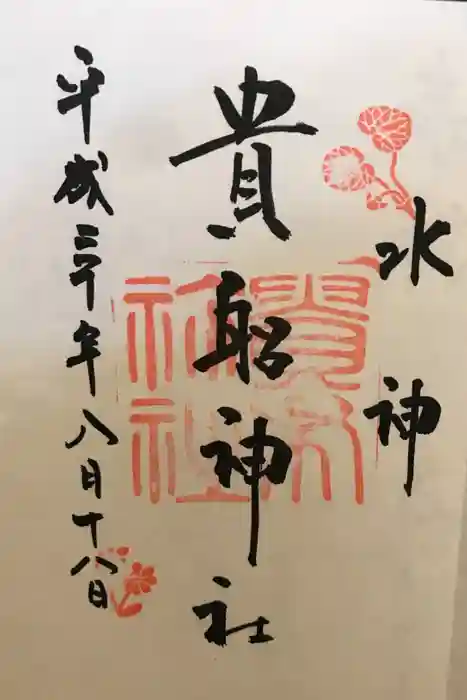 水神
貴船神社
平成三十年八月十八日
貴船
神社